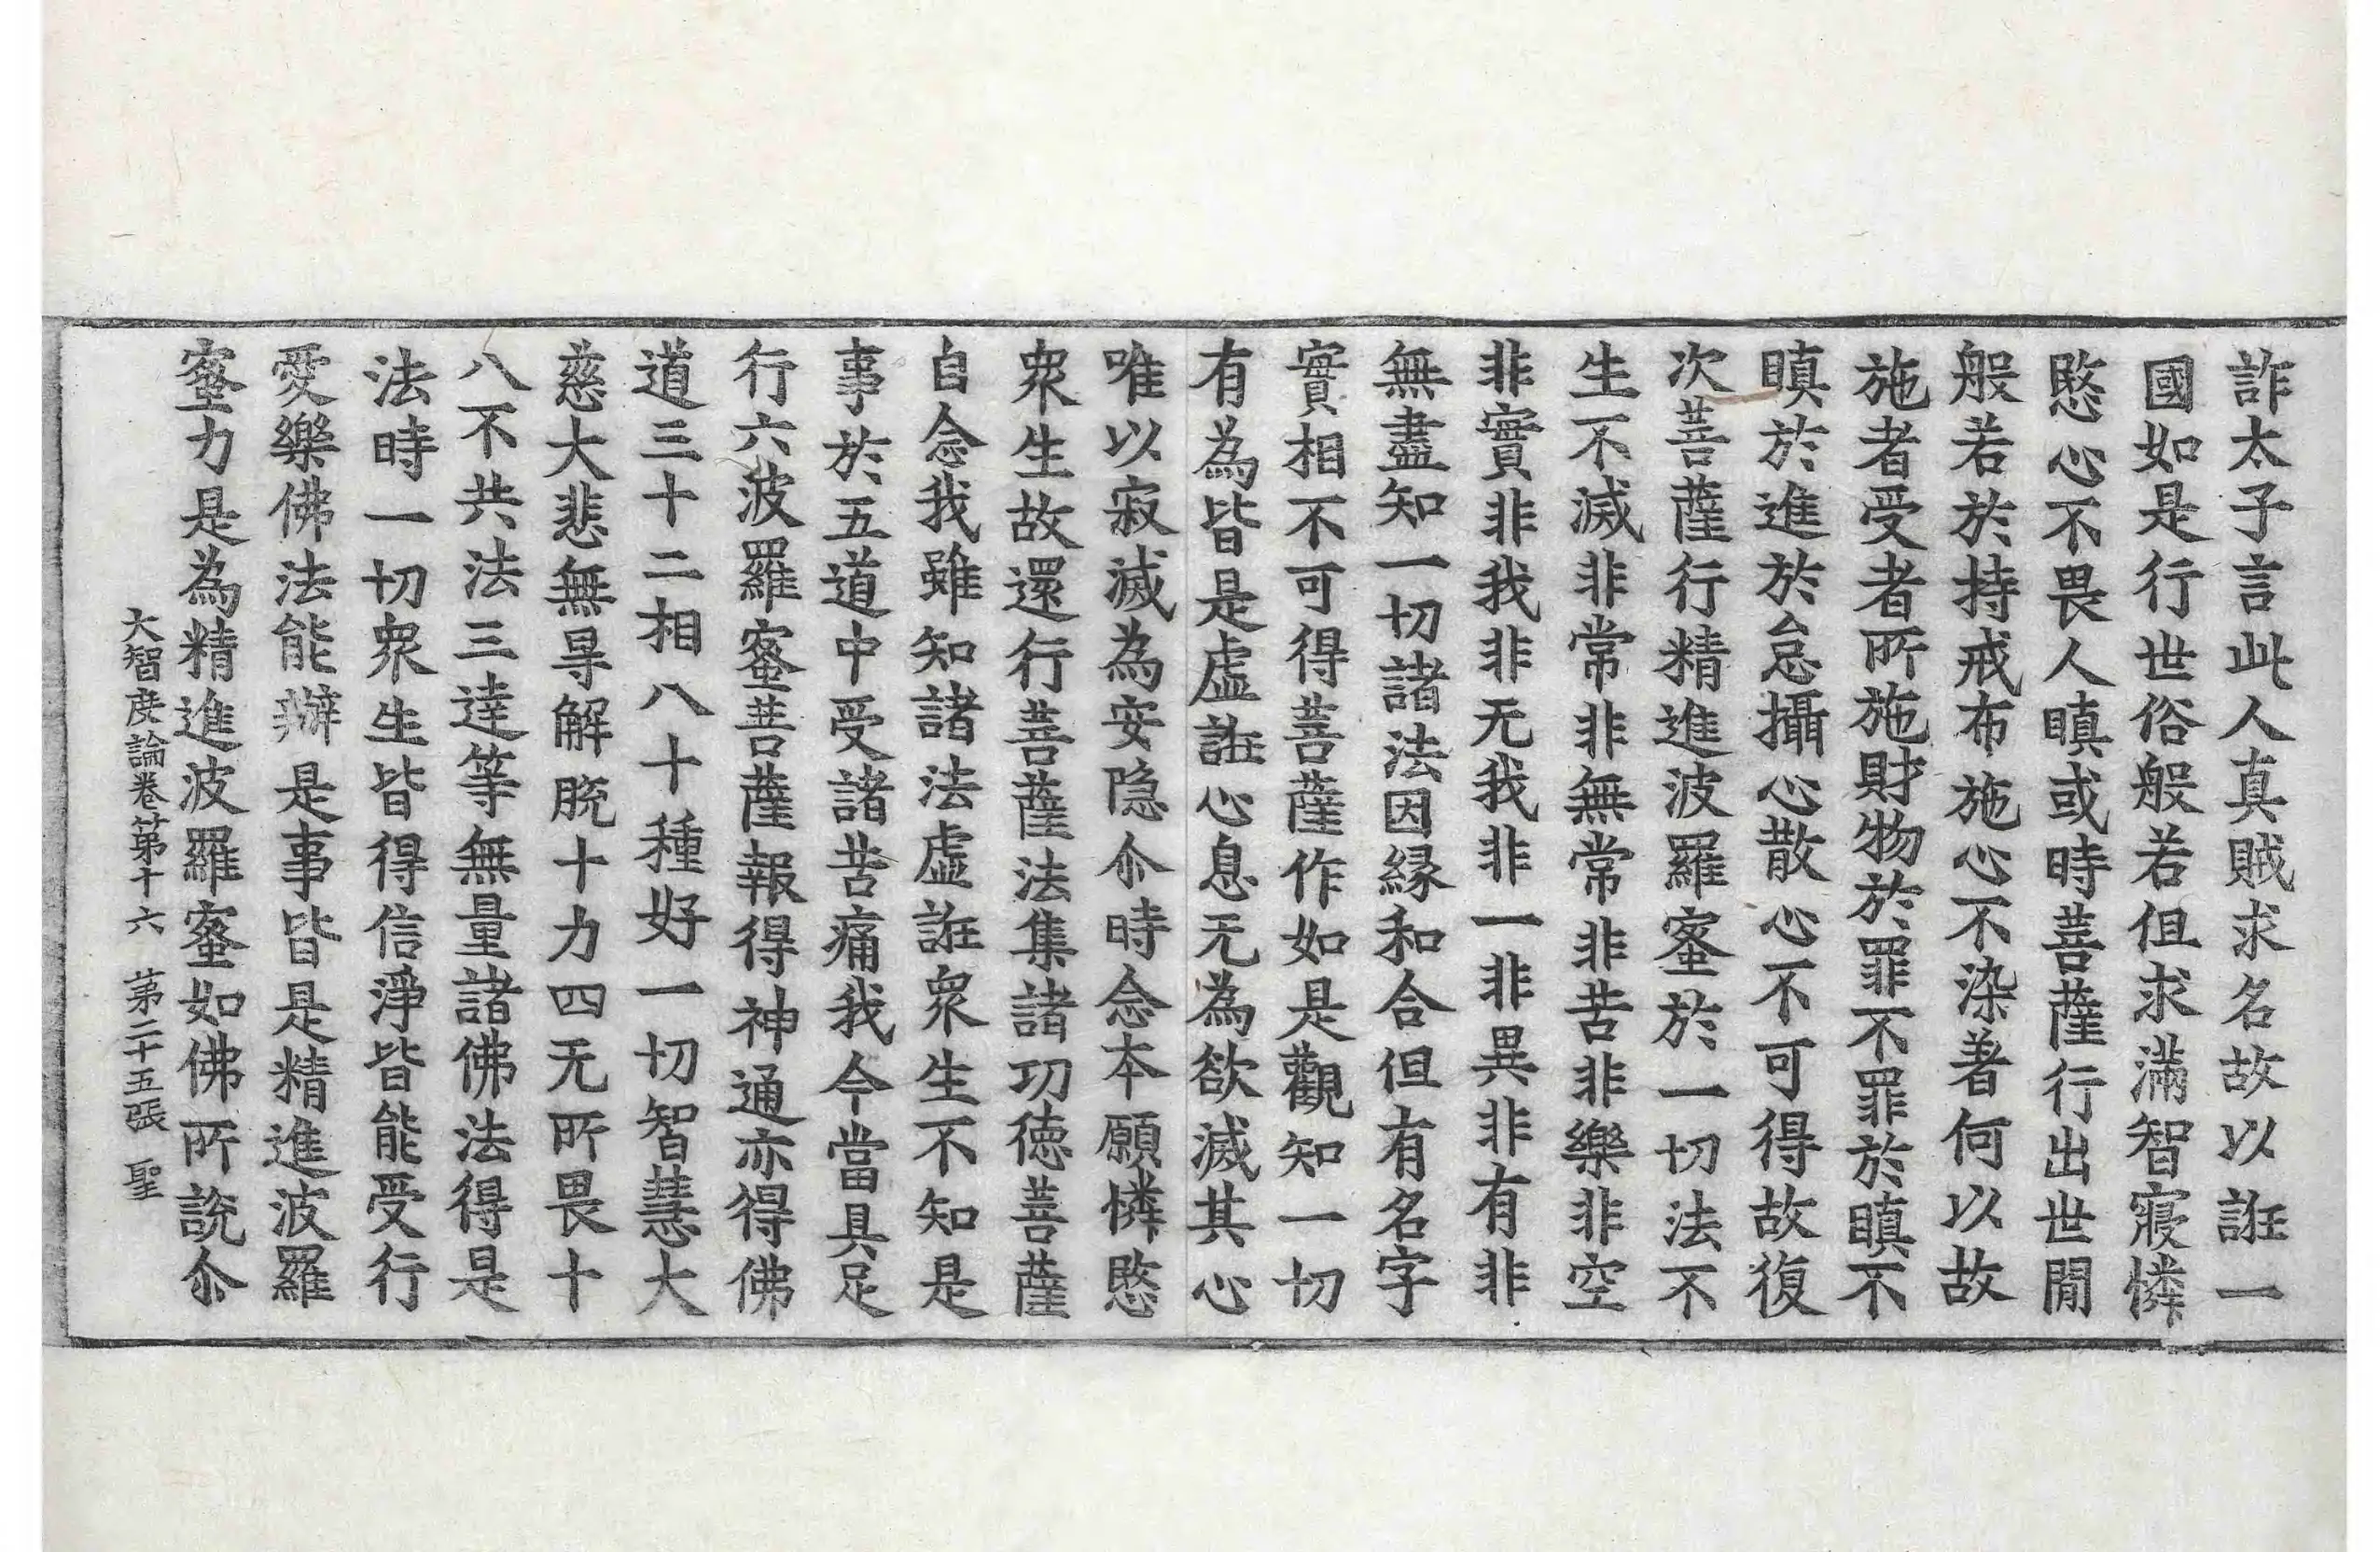 詐太子言此人真賊求名故以誑一
國如是行世俗般若但求滿智寢憐
愍心不畏人瞋或時菩薩行出世閒
般若於持戒布施心不染著何以故
施者受者所施財物於罪不罪於瞋不
瞋於進於怠攝心散心不可得故復
次菩薩行精進波羅蜜於一切法不
生不滅非常非無常非苦非樂非空
非實非我非无我非一非異非有非
無盡知一切諸法因緣和合但有名字
實相不可得菩薩作如是觀知一切
有為皆是虛誑心息无為欲滅其心
唯以寂滅為安隐尒時念本願憐愍
衆生故還行菩薩法集諸功德菩薩
自念我雖知諸法虛誑衆生不知是
事於五道中受諸苦痛我今當具足
行六波羅蜜菩薩報得神通亦得佛
道三十二相八十種好一切智慧大
慈大悲無㝵解脫十力四无所畏十
八不共法三達等無量諸佛法得是
法時一切衆生皆得信淨皆能受行
愛樂佛法能辦是事皆是精進波羅
蜜力是為精進波羅蜜如佛所說尒
大智度論卷第十六 第二十五張 聖